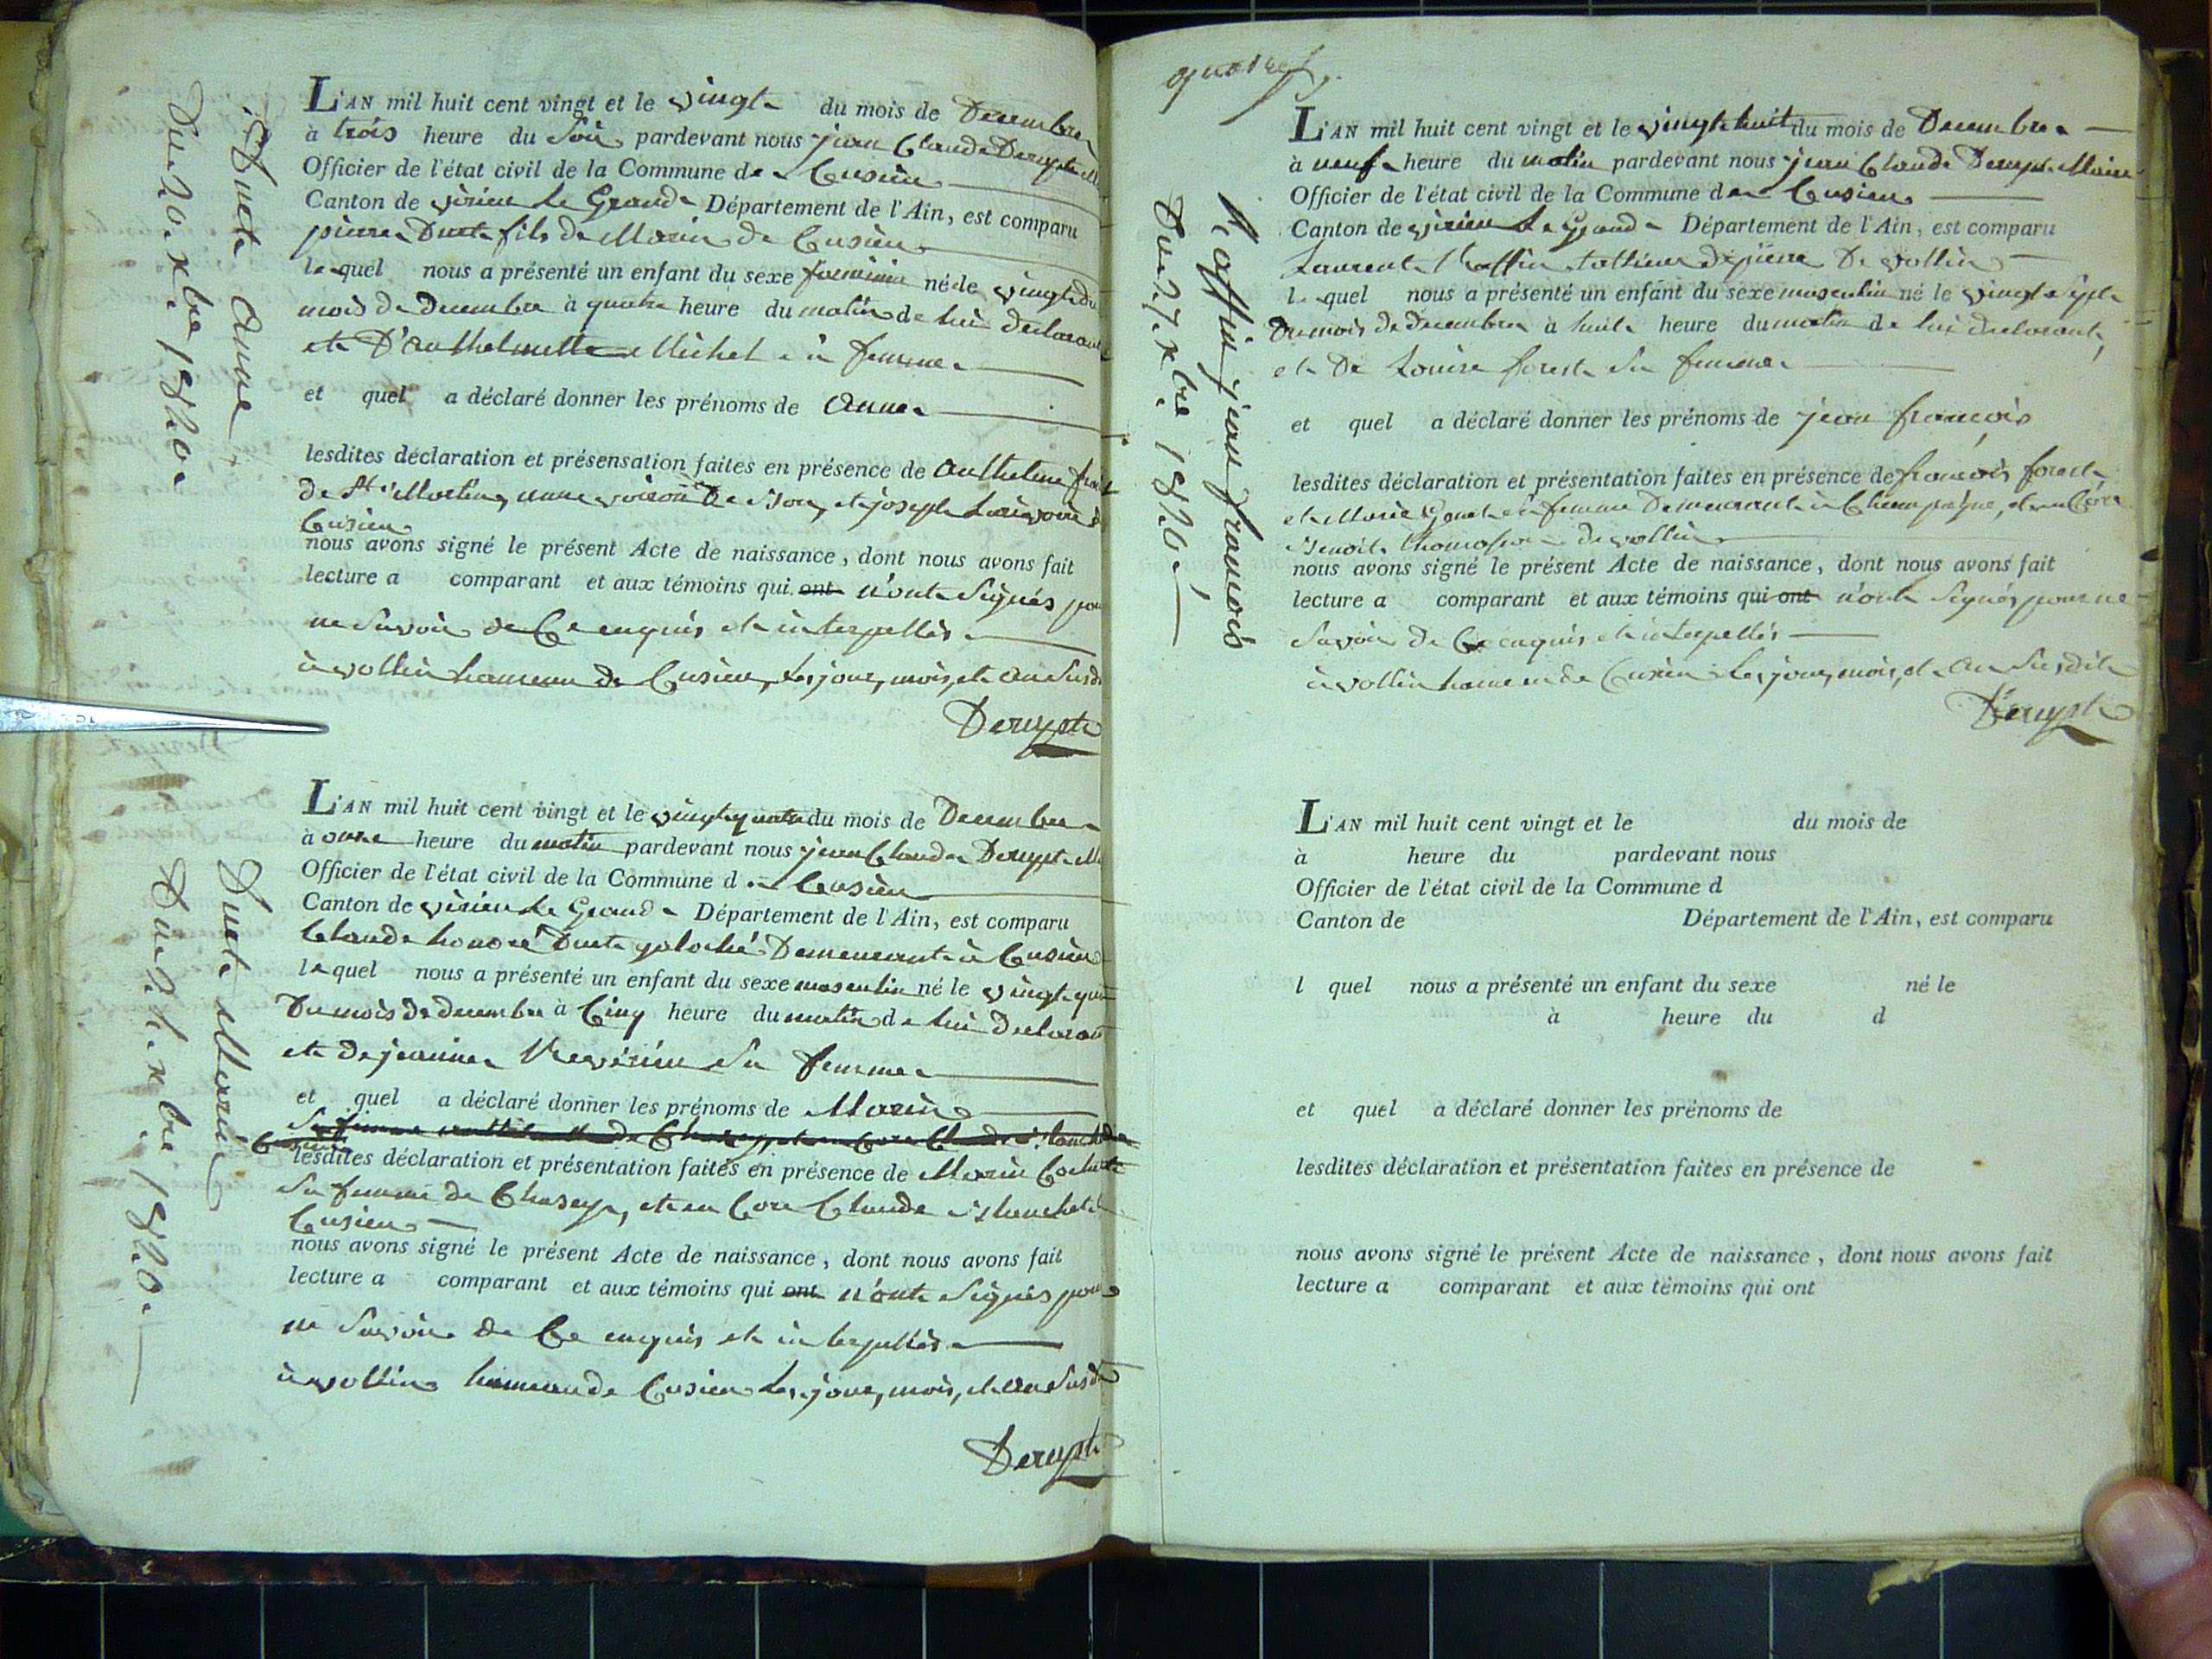 Ducte Anne
Du 20 xbre 1820
L'AN mil huit cent vingt et le vingt du mois de Decembre
à trois heure du Soir pardevant nous jean Claude Derupt
Officier de l'état civil de la Commune de Cusieu
Canton de virieu Le Grand Département de l'Ain, est comparu
pierre fils de Marin de Cusieu
le quel nous a présenté un enfant du sexe feminin né le vingt du
mois de Decembre à quatre heure du matin de lui declarant
et D'anthelmette Michel sa femme
et quel a déclaré donner les prénoms de Anne
lesdites déclaration et présensation faites en présence de Anthelme
de St Martin, et joseph
Cusieu
nous avons signé le présent Acte de naissance, dont nous avons fait
lecture a comparant et aux témoins qui ont n'ont Signés pour
ne Savoir de Ce enquis et interpellés
à vollien hameau de Cusieu, Les jour, mois, et an Susd
Derupt
Marin
Du 24 xbre 1820.
L'AN mil huit cent vingt et le vingt quatre du mois de Decembre
à onze heure du matin pardevant nous jean Claude Derupt
Officier de l'état civil de la Commune de Cusieu
Canton de virieu Le Grand Département de l'Ain, est comparu
Claude honoré Demeurant à Cusieu
le quel nous a présenté un enfant du sexe masculin né le vingt quatre
Du mois de decembre à Cinq heure du matin de lui declarant
et de jeanne sa femme
et quel a déclaré donner les prénoms de Marin
lesdites déclaration et présentation faites en présence de Marin
Sa femme de Chasey, et en Core Claude
Cusieu
nous avons signé le présent Acte de naissance, dont nous avons fait
lecture a comparant et aux témoins qui ont n'ont Signés pour
ne Savoir de Ce enquis et interpellés
à vollien hameau de Cusieu Les jour, mois, et an Susd
Derupt
jean francois
Du 27 xbre 1820
L'AN mil huit cent vingt et le vingt huit du mois de Decembre
à neuf heure du matin pardevant nous jean Claude Derupt Maire
Officier de l'état civil de la Commune de Cusieu
Canton de virieu Le Grand Département de l'Ain, est comparu
Laurent de vollien
le quel nous a présenté un enfant du sexe masculin né le vingt Sept
Du mois de decembre à huit heure du matin de lui declarant,
et De Louise forest Sa femme
et quel a déclaré donner les prénoms de jean francois
lesdites déclaration et présentation faites en présence de francois forest
et Marie sa femme Demeurant à Champagne, et en Core
Benoit de vollien
nous avons signé le présent Acte de naissance, dont nous avons fait
lecture a comparant et aux témoins qui ont n'ont Signés pour ne
Savoir de Ce enquis et interpellés
à vollien hameau de Cusieu Les jour, mois, et an Susdit
Derupt
L'AN mil huit cent vingt et le du mois de
à heure du pardevant nous
Officier de l'état civil de la Commune d
Canton de Département de l'Ain, est comparu
l quel nous a présenté un enfant du sexe né le
à heure du d
et quel a déclaré donner les prénoms de
lesdites déclaration et présentation faites en présence de
nous avons signé le présent Acte de naissance, dont nous avons fait
lecture a comparant et aux témoins qui ont